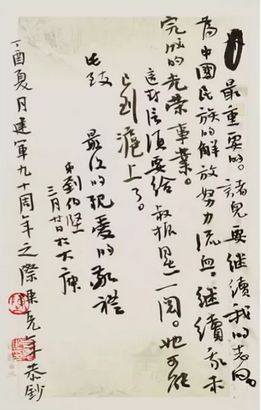 最重要的。諸兒要继续我的志向。
為中國民族的解放努力流血。继续我未
完成的光榮事業。
這封信須要给叔振同志一阅。她可能
已到滬上了。
此致
最後的親爱的敬禮
弟劉伯坚
三月廿日於大庾
丁酉夏月建軍九十周年之際恭鈔